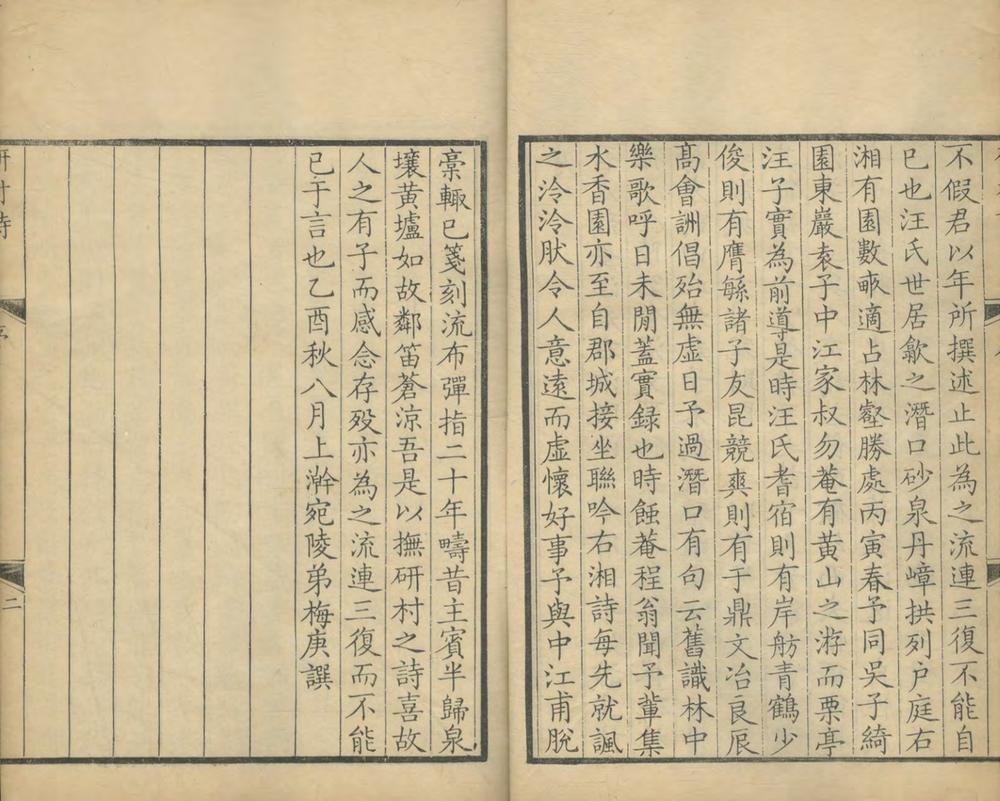 不假君以年所撰述止此為之流連三復不能自
已也汪氏世居歙之潛口砂泉丹嶂拱列户庭右
湘有園數畝適占林壑勝處丙寅春予同吳子綺
園東巖袁子中江家叔勿菴有黄山之游而栗亭
汪子實為前導是時汪氏耆宿則有岸舫青鶴少
俊則有膺繇諸子友昆競爽則有于鼎文冶良辰
髙會詶倡殆無虚日予過潛口有句云舊識林中
樂歌呼日未閒蓋實録也時蝕菴程翁聞予輩集
水香園亦至自郡城接坐聯吟右湘詩每先就諷
之泠泠肰令人意遠而虚懷好事予與中江甫脫
稾輙已箋刻流布彈指二十年疇昔主賓半歸泉
壤黃壚如故鄰笛蒼涼吾是以撫研村之詩喜故
人之有子而感念存歿亦為之流連三復而不能
已于言也乙酉秋八月上澣宛陵弟梅庚譔
研村詩
序
二